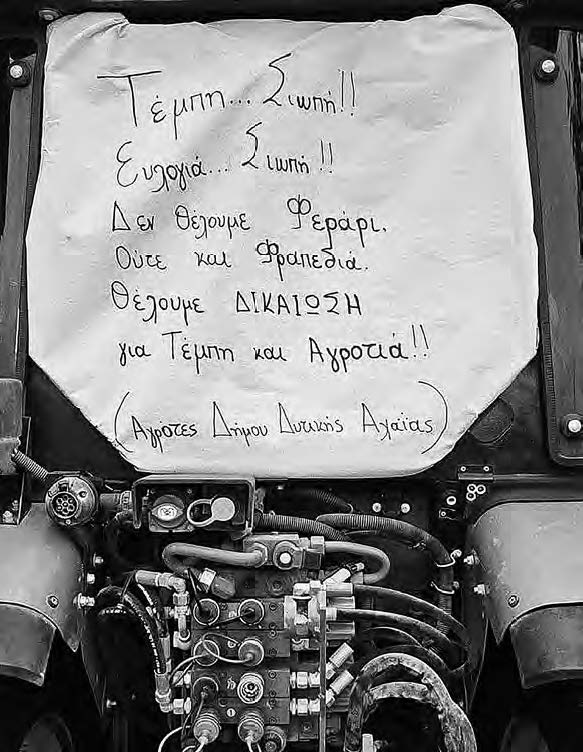 Τέμπη... Σιωπή!!
Ευλογιά... Σιωπή!!
Δεν θέλουμε Φεράρι.
Ούτε και Φραπεδιά.
Θέλουμε ΔΙΚΑΙΩΣΗ
για Τέμπη και Αγροτιά!!
(Αγροτες Δήμου Δυτικής Αχαΐας)